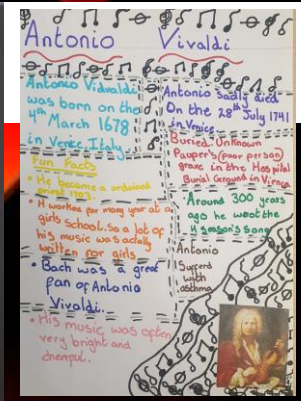 Antonio Vivaldi
Antonio Vidvaldi
was born on the
4th March 1678
in Venze, Italy.
Fun Facts
• He became a ordained
priest 1703.
• H worked for many year at a
girls school. so a lot of
his music was actally
written for girls
• Bach was a great
fan of Antonio
Vivaldi.
• His music was often
very bright and
cheerpul.
Antonio Sadly died
On the 28th July 1741
in Venice
Buried: Unknown
Pauper's (poor person)
grave in the Hospital
Burial Ground in Vienca
Around 300 years
ago he wrot the
4 season's song
Antonio
Suferd
with
asthma